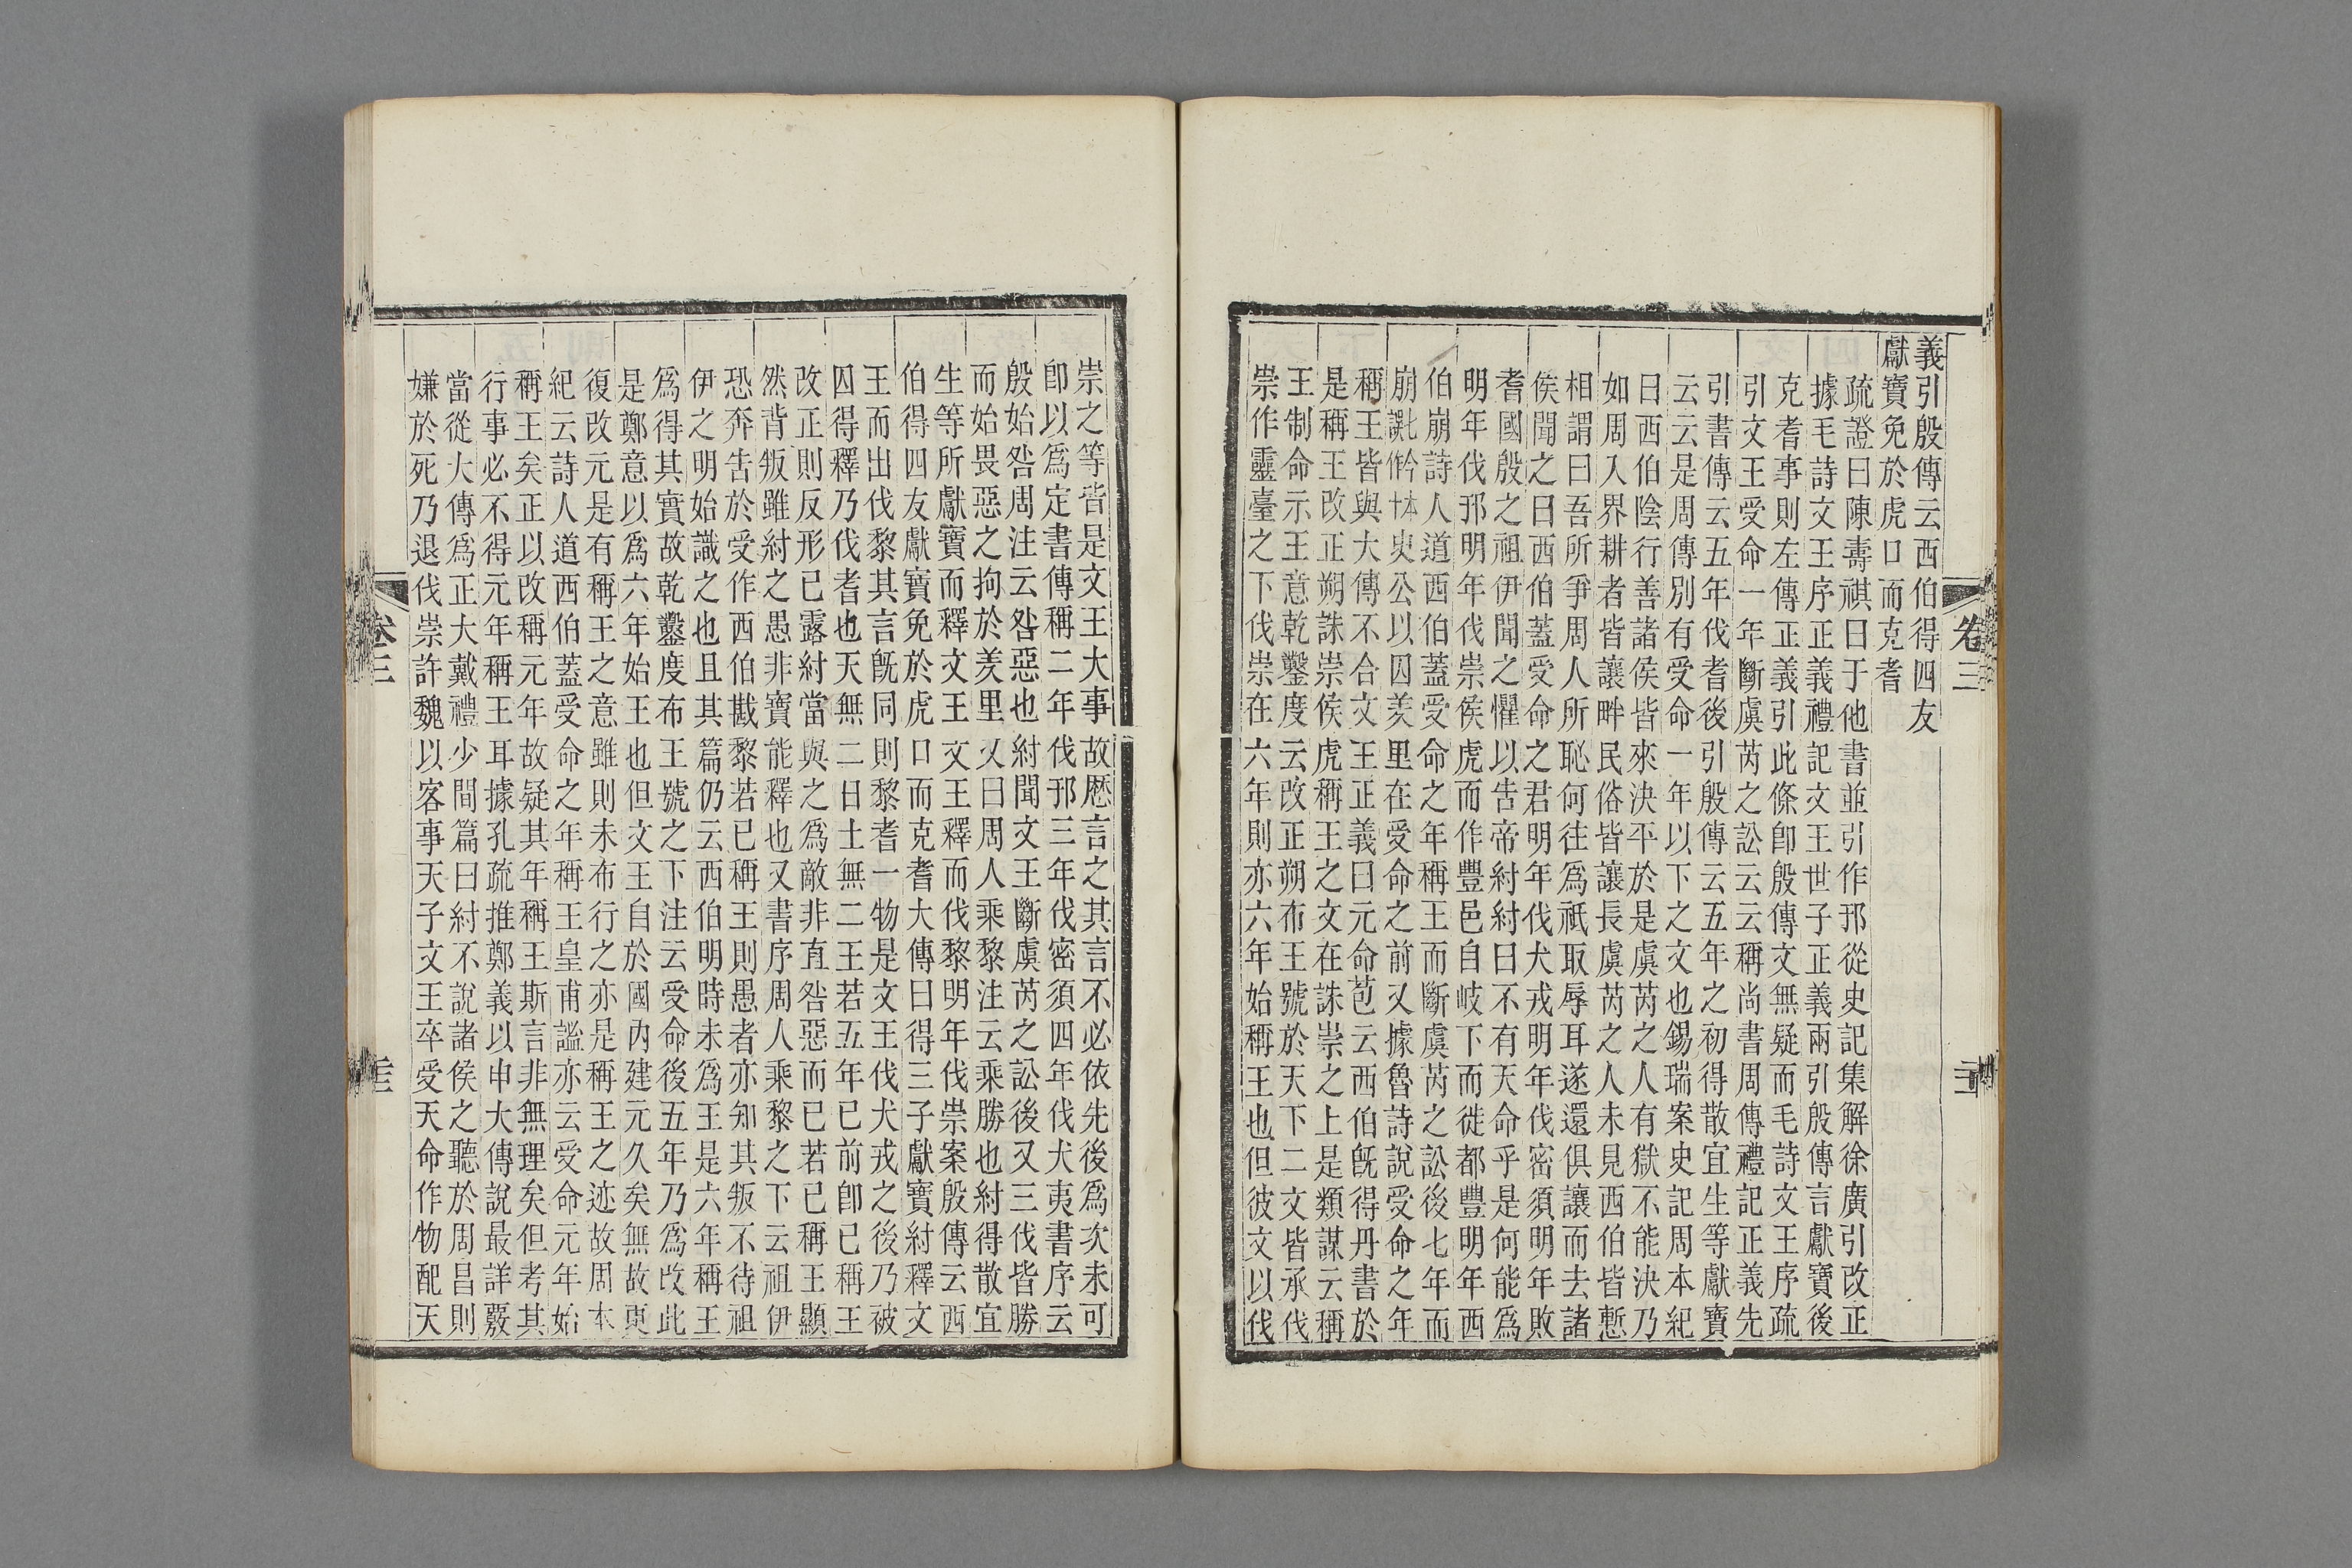 義引殷傳云西伯得四友
獻寶免於虎口而克耆
疏證曰陳壽祺曰于他書並引作邘從史記集解徐廣引改正
據毛詩文王序正義禮記文王世子正義兩引殷傳言獻寶後
克耆事則左傳正義引此條卽殷傳文無疑而毛詩文王序疏
引文王受命一年斷虞芮之訟云云稱尚書周傳禮記正義先
引書傳云五年伐耆後引殷傳云五年之初得散宜生等獻寶
云云是周傳別有受命一年以下之文也錫瑞案史記周本紀
曰西伯陰行善諸侯皆來決平於是虞芮之人有獄不能決乃
如周入界耕者皆讓畔民俗皆讓長虞芮之人未見西伯皆慙
相謂曰吾所爭周人所恥何往爲祇取辱耳遂還俱讓而去諸
侯聞之曰西伯蓋受命之君明年伐犬戎明年伐密須明年敗
耆國殷之祖伊聞之懼以告帝紂紂曰不有天命乎是何能爲
明年伐邘明年伐崇侯虎而作豐邑自岐下而徙都豐明年西
伯崩詩人道西伯蓋受命之年稱王而斷虞芮之訟後七年而
崩史公以囚羑里在受命之前又據魯詩說受命之年
稱王皆與大傳不合文王正義曰元命苞云西伯旣得丹書於
是稱王改正朔誅崇侯虎稱王之文在誅崇之上是類謀云稱
王制命示王意乾鑿度云改正朔布王號於天下二文皆承伐
崇作靈臺之下伐崇在六年則亦六年始稱王也但彼文以伐
卷三
崇之等皆是文王大事故歷言之其言不必依先後爲次未可
卽以爲定書傳稱二年伐邘三年伐密須四年伐犬夷書序云
殷始咎周注云咎惡也紂聞文王斷虞芮之訟後又三伐皆勝
而始畏惡之拘於羑里又曰周人乘黎注云乘勝也紂得散宜
生等所獻寶而釋文王文王釋而伐黎明年伐崇案殷傳云西
伯得四友獻寶免於虎口而克耆大傳曰得三子獻寶紂釋文
王而出伐黎其言旣同則黎耆一物是文王伐犬戎之後乃被
囚得釋乃伐耆也天無二日土無二王若五年已前卽已稱王
改正則反形已露紂當與之爲敵非直咎惡而已若已稱王顯
然背叛雖紂之愚非寶能釋也又書序周人乘黎之下云祖伊
恐奔告於受作西伯戡黎若已稱王則愚者亦知其叛不待祖
伊之明始識之也且其篇仍云西伯明時未爲王是六年稱王
爲得其實故乾鑿度布王號之下注云受命後五年乃爲改此
是鄭意以爲六年始王也但文王自於國內建元久矣無故更
復改元是有稱王之意雖則未布行之亦是稱王之迹故周本
紀云詩人道西伯蓋受命之年稱王皇甫謐亦云受命元年始
稱王矣正以改稱元年故疑其年稱王斯言非無理矣但考其
行事必不得元年稱王耳據孔疏推鄭義以申大傳說最詳覈
當從大傳爲正大戴禮少間篇曰紂不說諸侯之聽於周昌則
嫌於死乃退伐崇許魏以客事天子文王卒受天命作物配天
卷三